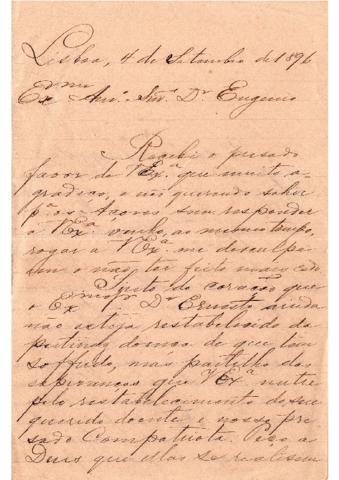 Lisboa, 4 de Setembro de 1896
Exmo Am.o Snr. Dr Eugenio
Recebi o presado
favor de V Ex.a que muito a-
gradeço, e não querendo saber
pa os Açores sem responder
a V Exa venho, ao mesmo tempo,
rogar a V Exa me desculpe
de o não ter feito mais cedo.
Sinto do coração que
o Exmo Snr Dr Ernesto ainda
não esteja restabelecido da
pertinaz doença de que tem
soffrido, mas partilho das
esperanças que V Exa nutre
pelo restabelecimento do seu
querido doente e nosso pre-
sado Compatriota. Peço a
Deus que ellas se realisem